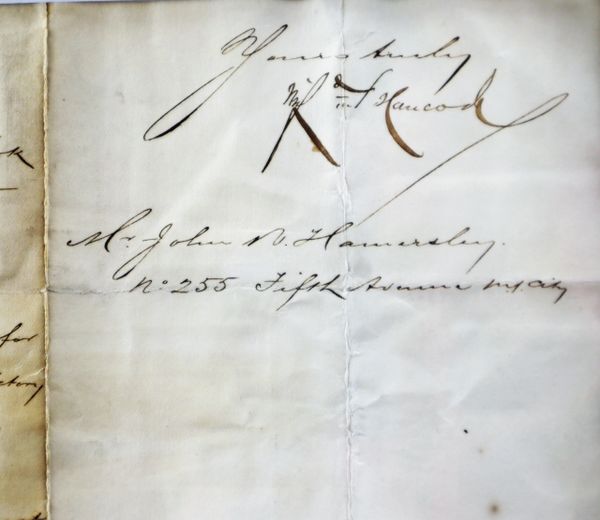 Yours truly
Winf Hancock
Mr. John W. Hamersley.
No 255 Fifth Avenue N.Y. City
for